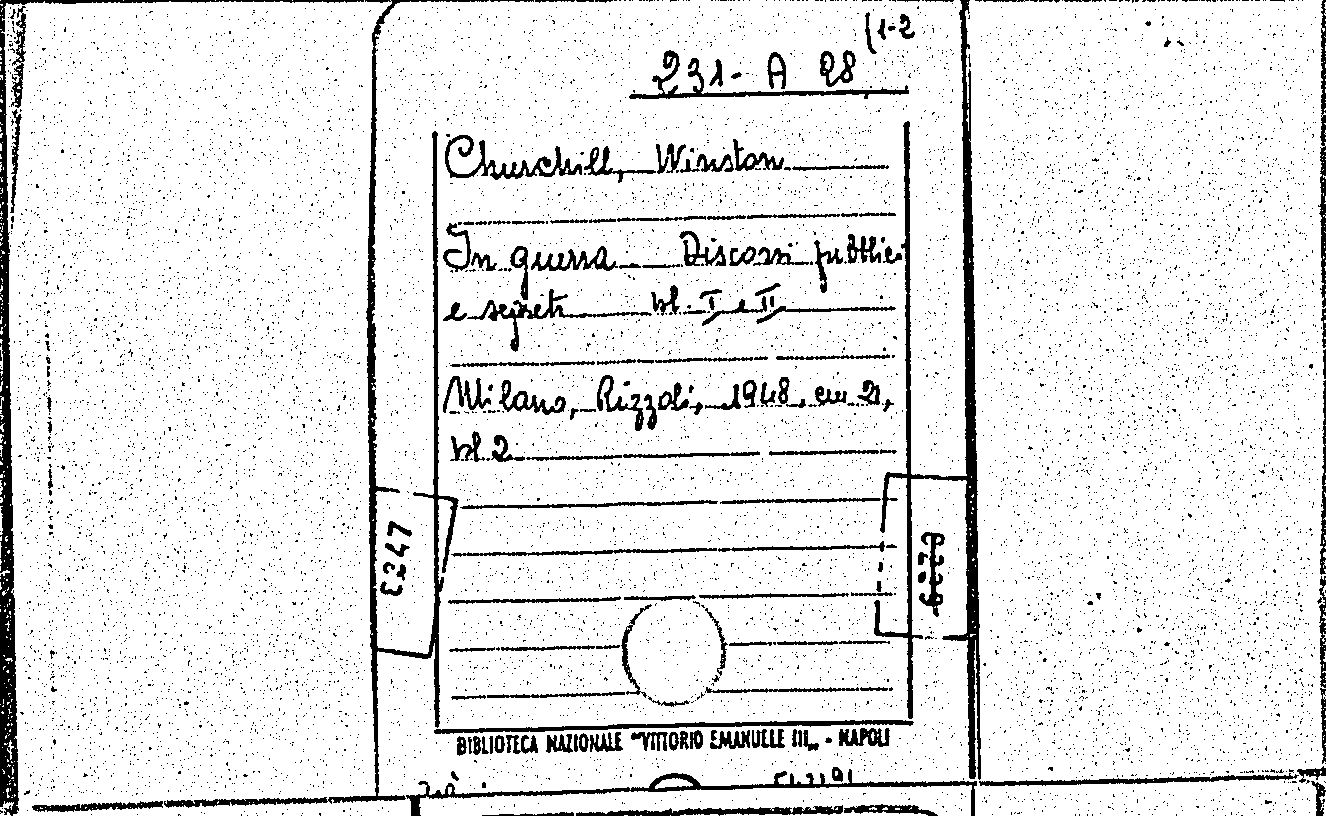 (1-2
231- A 28
Churchill, Winston
In guerra - Discorsi pubblici
e segreti vl. I e II
Milano, Rizzoli, 1948, cm 21,
vl 2
C247
BIBLIOTECA NAZIONALE "VITTORIO EMANUELE III„ - NAPOLI